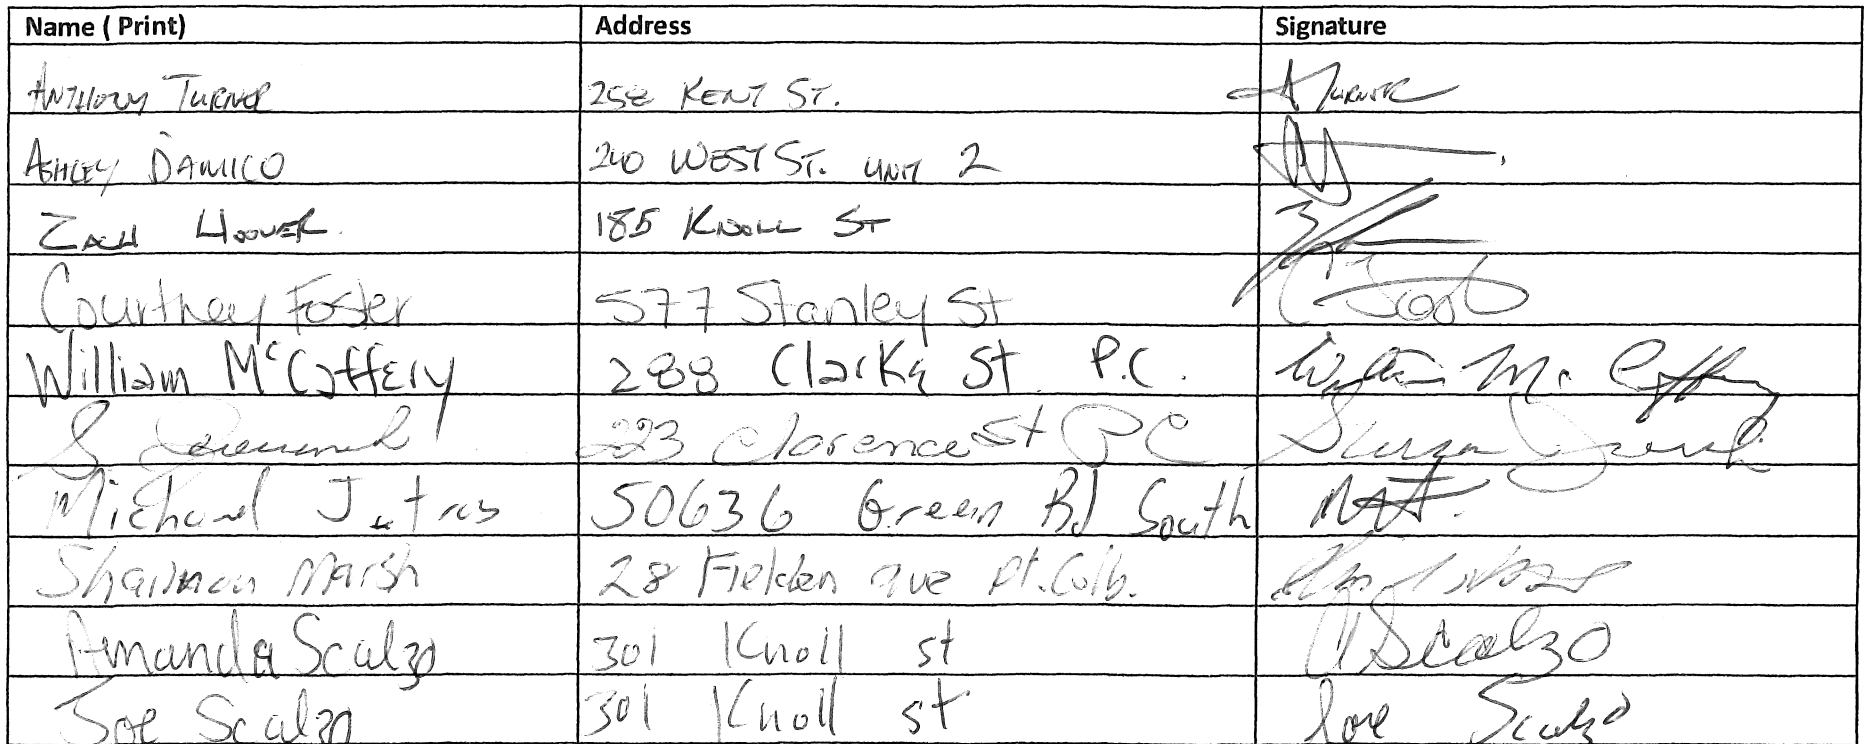 Name ( Print) Address Signature
ANTHONY TURNER 258 KENT ST. A Turner
ASHLEY DAMICO 240 WEST ST. UNIT 2
ZACH HOOVER 185 KNOLL ST
Courtney Foster 577 Stanley St
William McCaffery 288 Clarke St P.C. William McCaffery
S 223 Clarence St PC
Michael Jutras 50636 Green Rd South
Shannon Marsh 28 Fielden ave Pt.Colb.
Amanda Scalzo 301 Knoll st A Scalzo
Joe Scalzo 301 Knoll st Joe Scalzo